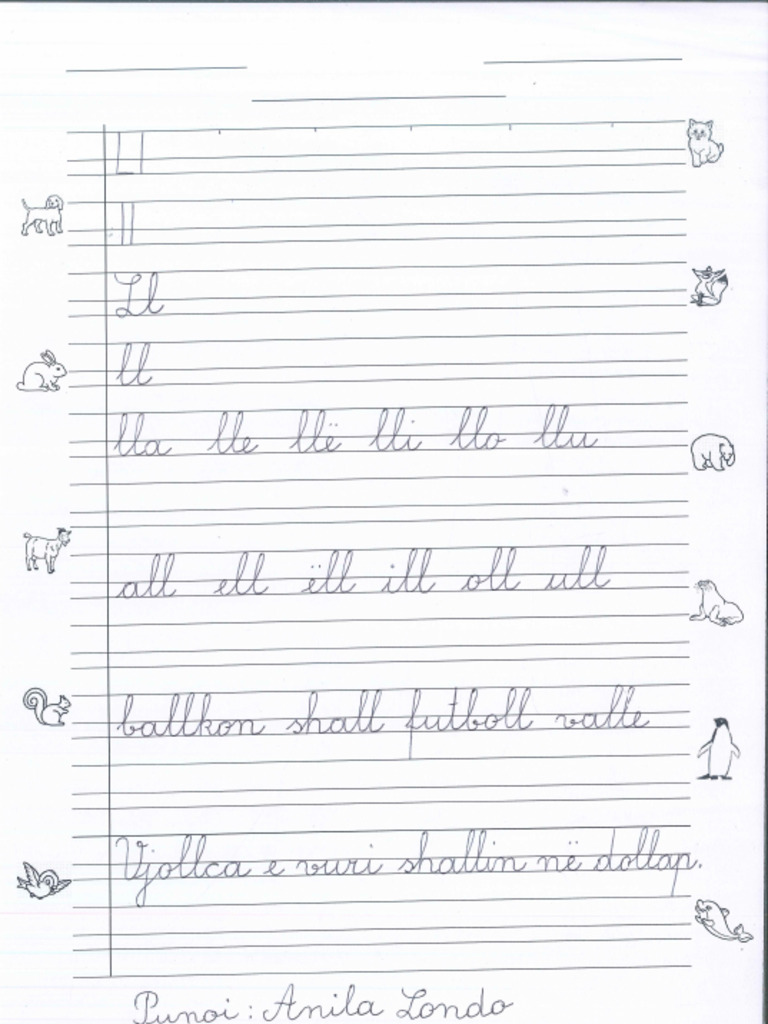 Ll
ll
Ll
ll
lla lle llë lli llo llu
all ell ëll ill oll ull
ballkon shall futboll valle
Vjollca e vuri shallin në dollap.
Punoi: Anila Londo